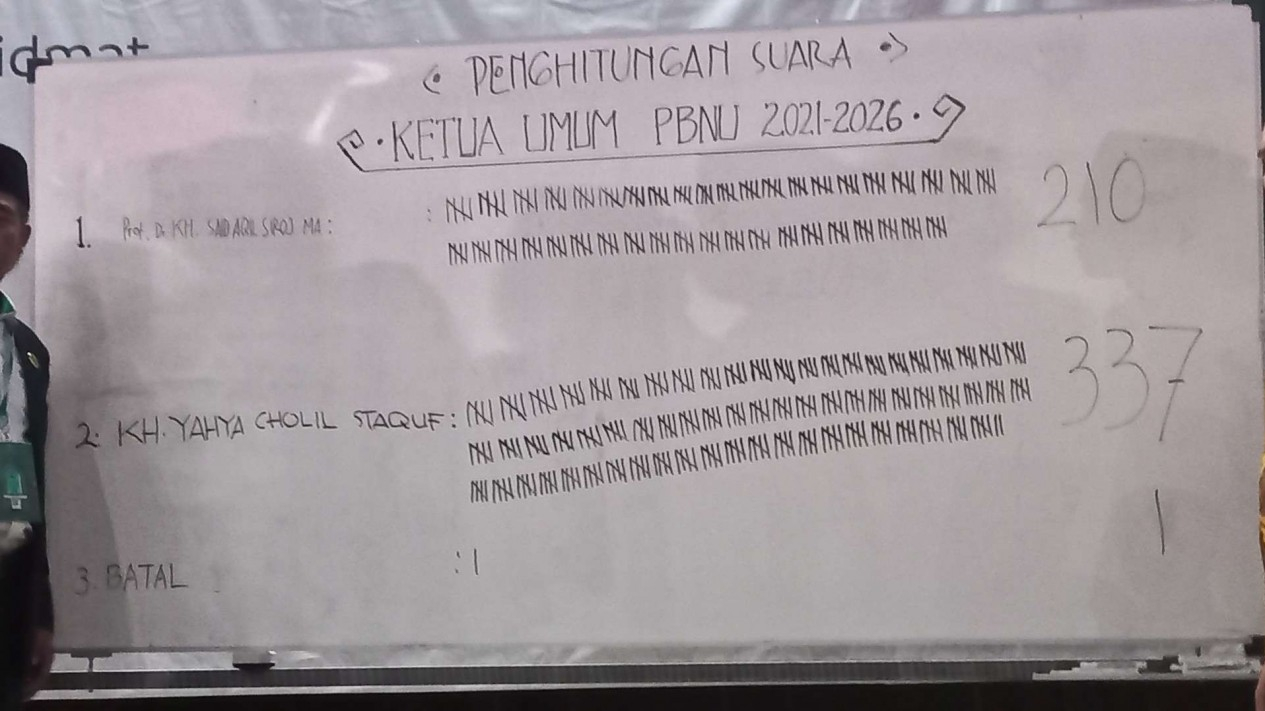 idmat
PENGHITUNGAN SUARA
KETUA UMUM PBNU 2021-2026
1. Prof. Dr. KH. SAID AQIL SIROJ MA : : 210
2. KH. YAHYA CHOLIL STAQUF : 337
3. BATAL : 1 1